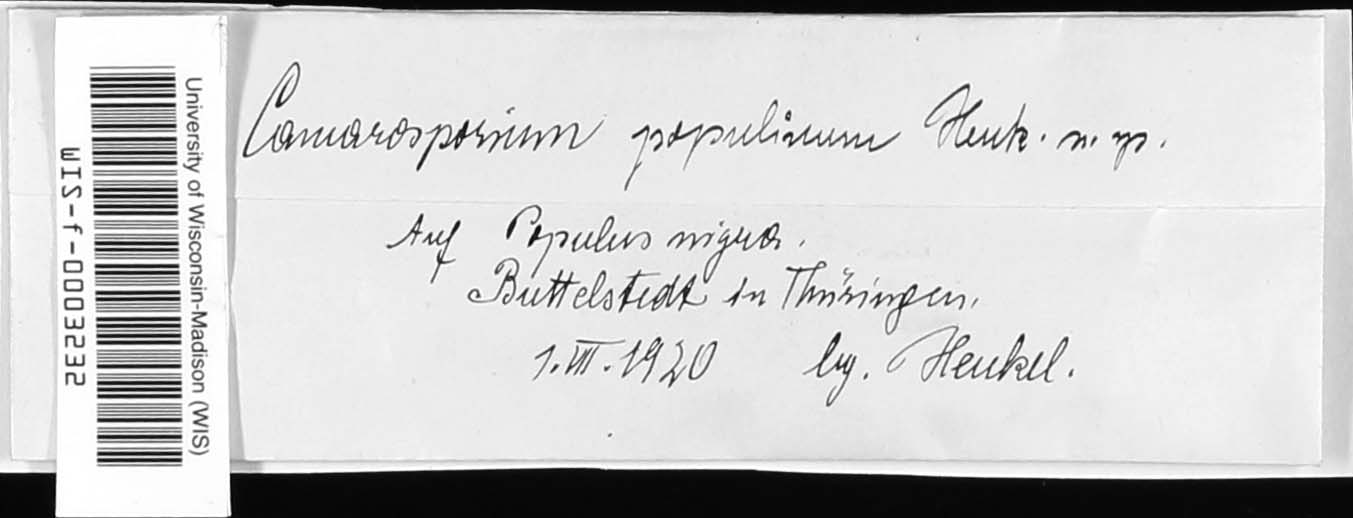 University of Wisconsin-Madison (WIS)
WIS-f-0003232
Camarosporium populinum Henk. n. sp.
Auf Populus nigra.
Buttelstedt in Thüringen.
1.III.1920 leg. Henkel.